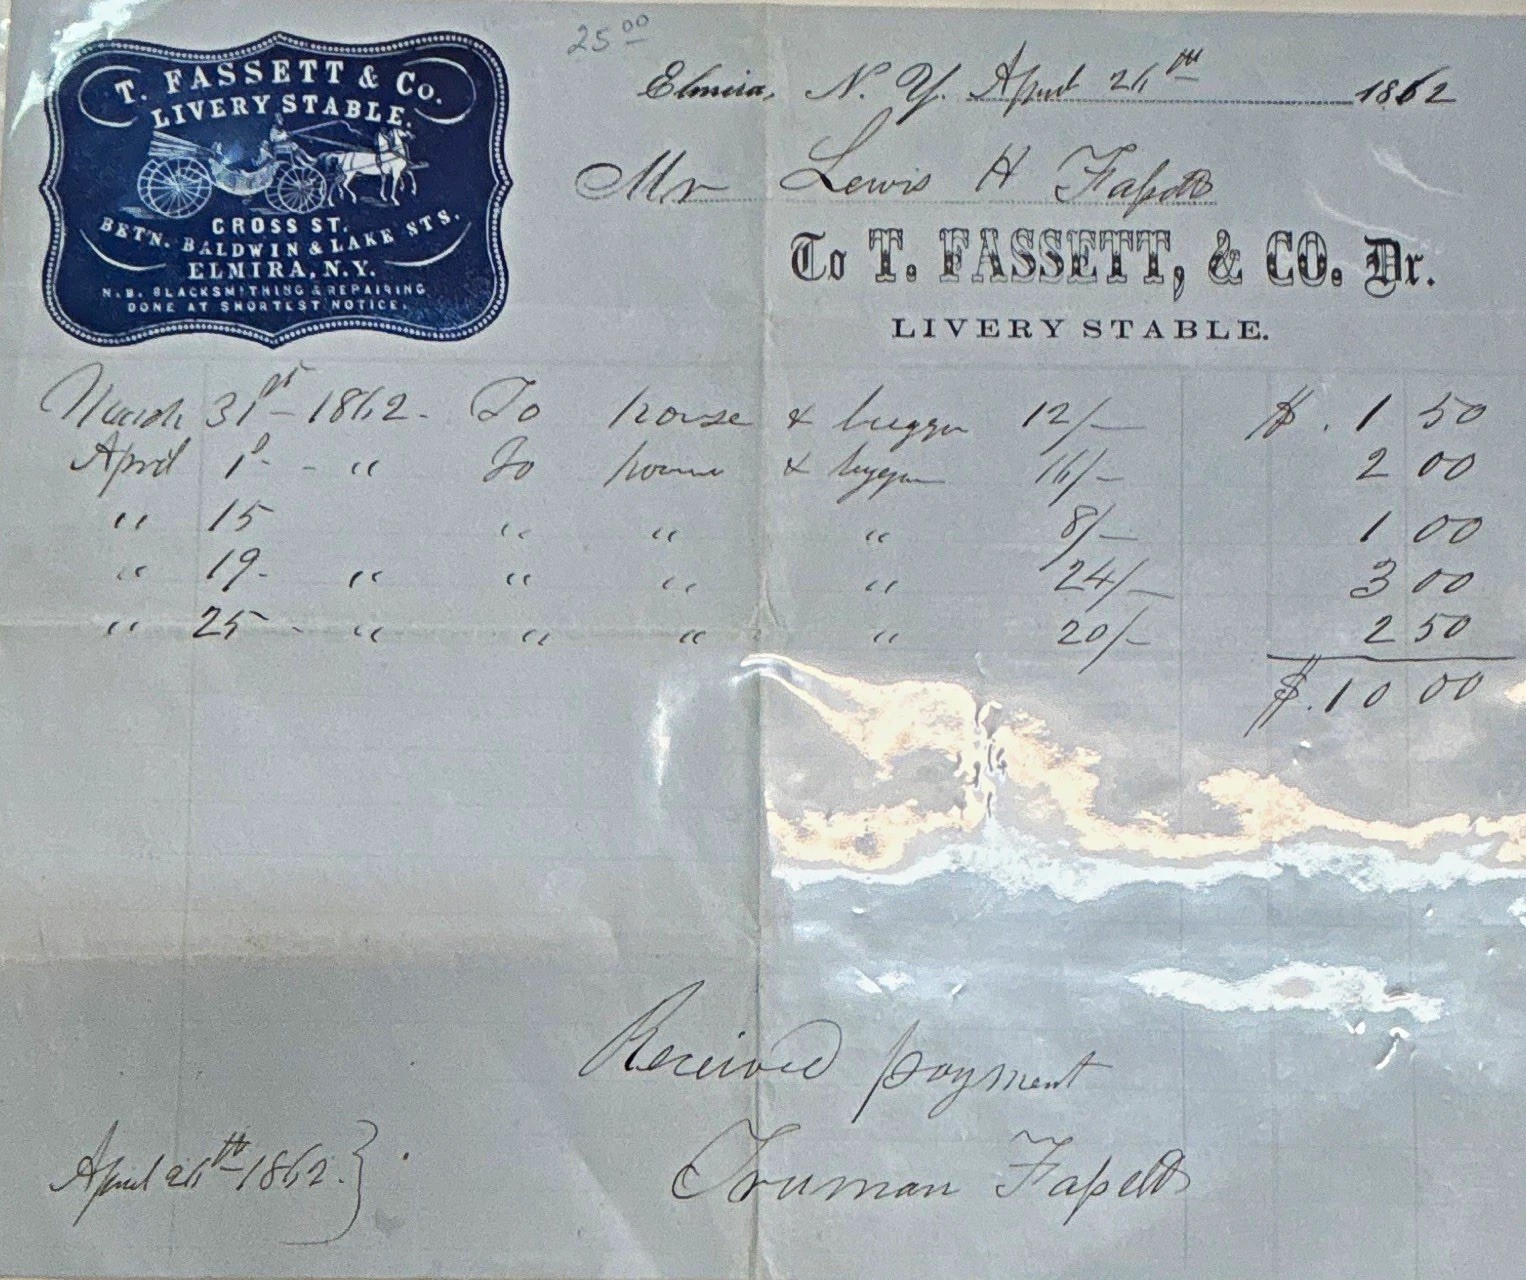 T. FASSETT & CO.
LIVERY STABLE.
CROSS ST.
BET'N. BALDWIN & LAKE STS.
ELMIRA, N.Y.
N.B. BLACKSMITHING & REPAIRING
DONE AT SHORTEST NOTICE.
25 00
Elmira, N. Y. April 26th 1862
Mr Lewis H Fassett
To T. FASSETT, & CO. Dr.
LIVERY STABLE.
March 31st - 1862 - To horse & buggy 12/- $ . 1 50
April 1st - - " To horse & buggy 16/- 2 00
" 15 " " " 8/- 1 00
" 19 - " " " " 24/- 3 00
" 25 - " " " " 20/- 2 50
$ . 10 00
Received payment
April 26th 1862. } . Truman Fassett